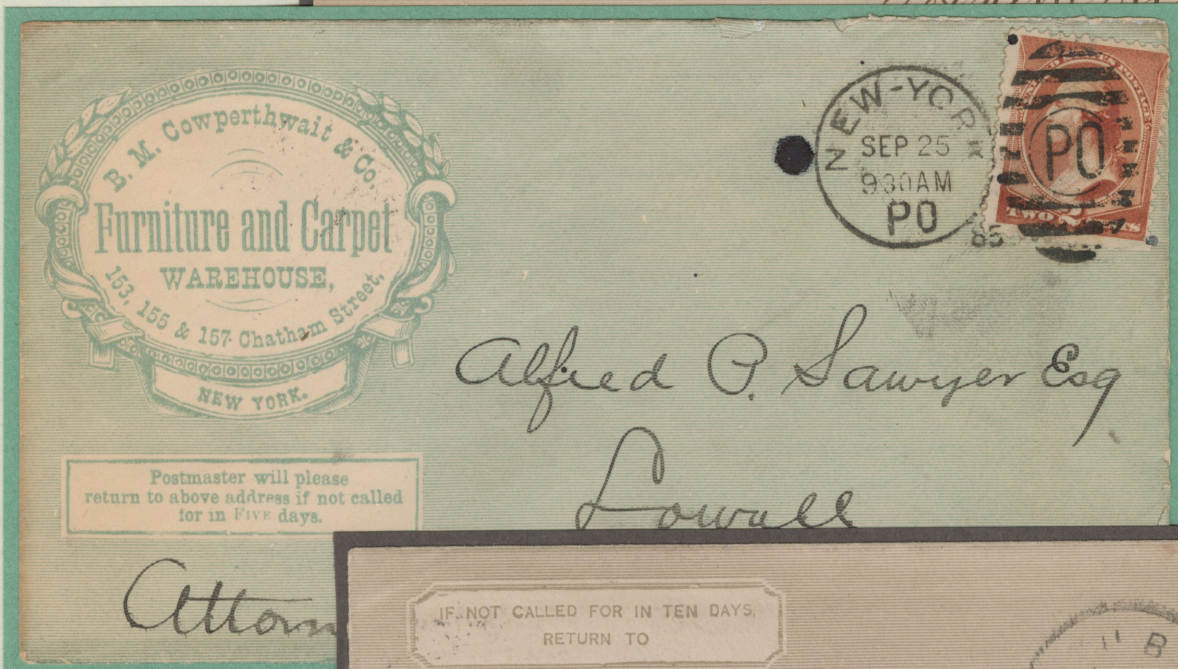 B. M. Cowperthwait & Co.
Furniture and Carpet
WAREHOUSE,
153, 155 & 157 Chatham Street,
NEW YORK.
Postmaster will please
return to above address if not called
for in FIVE days.
NEW-YORK
SEP 25
930AM
PO
85
PO
TWO 2
Alfred P. Sawyer Esq
Lowell
Attorn
IF NOT CALLED FOR IN TEN DAYS,
RETURN TO
B